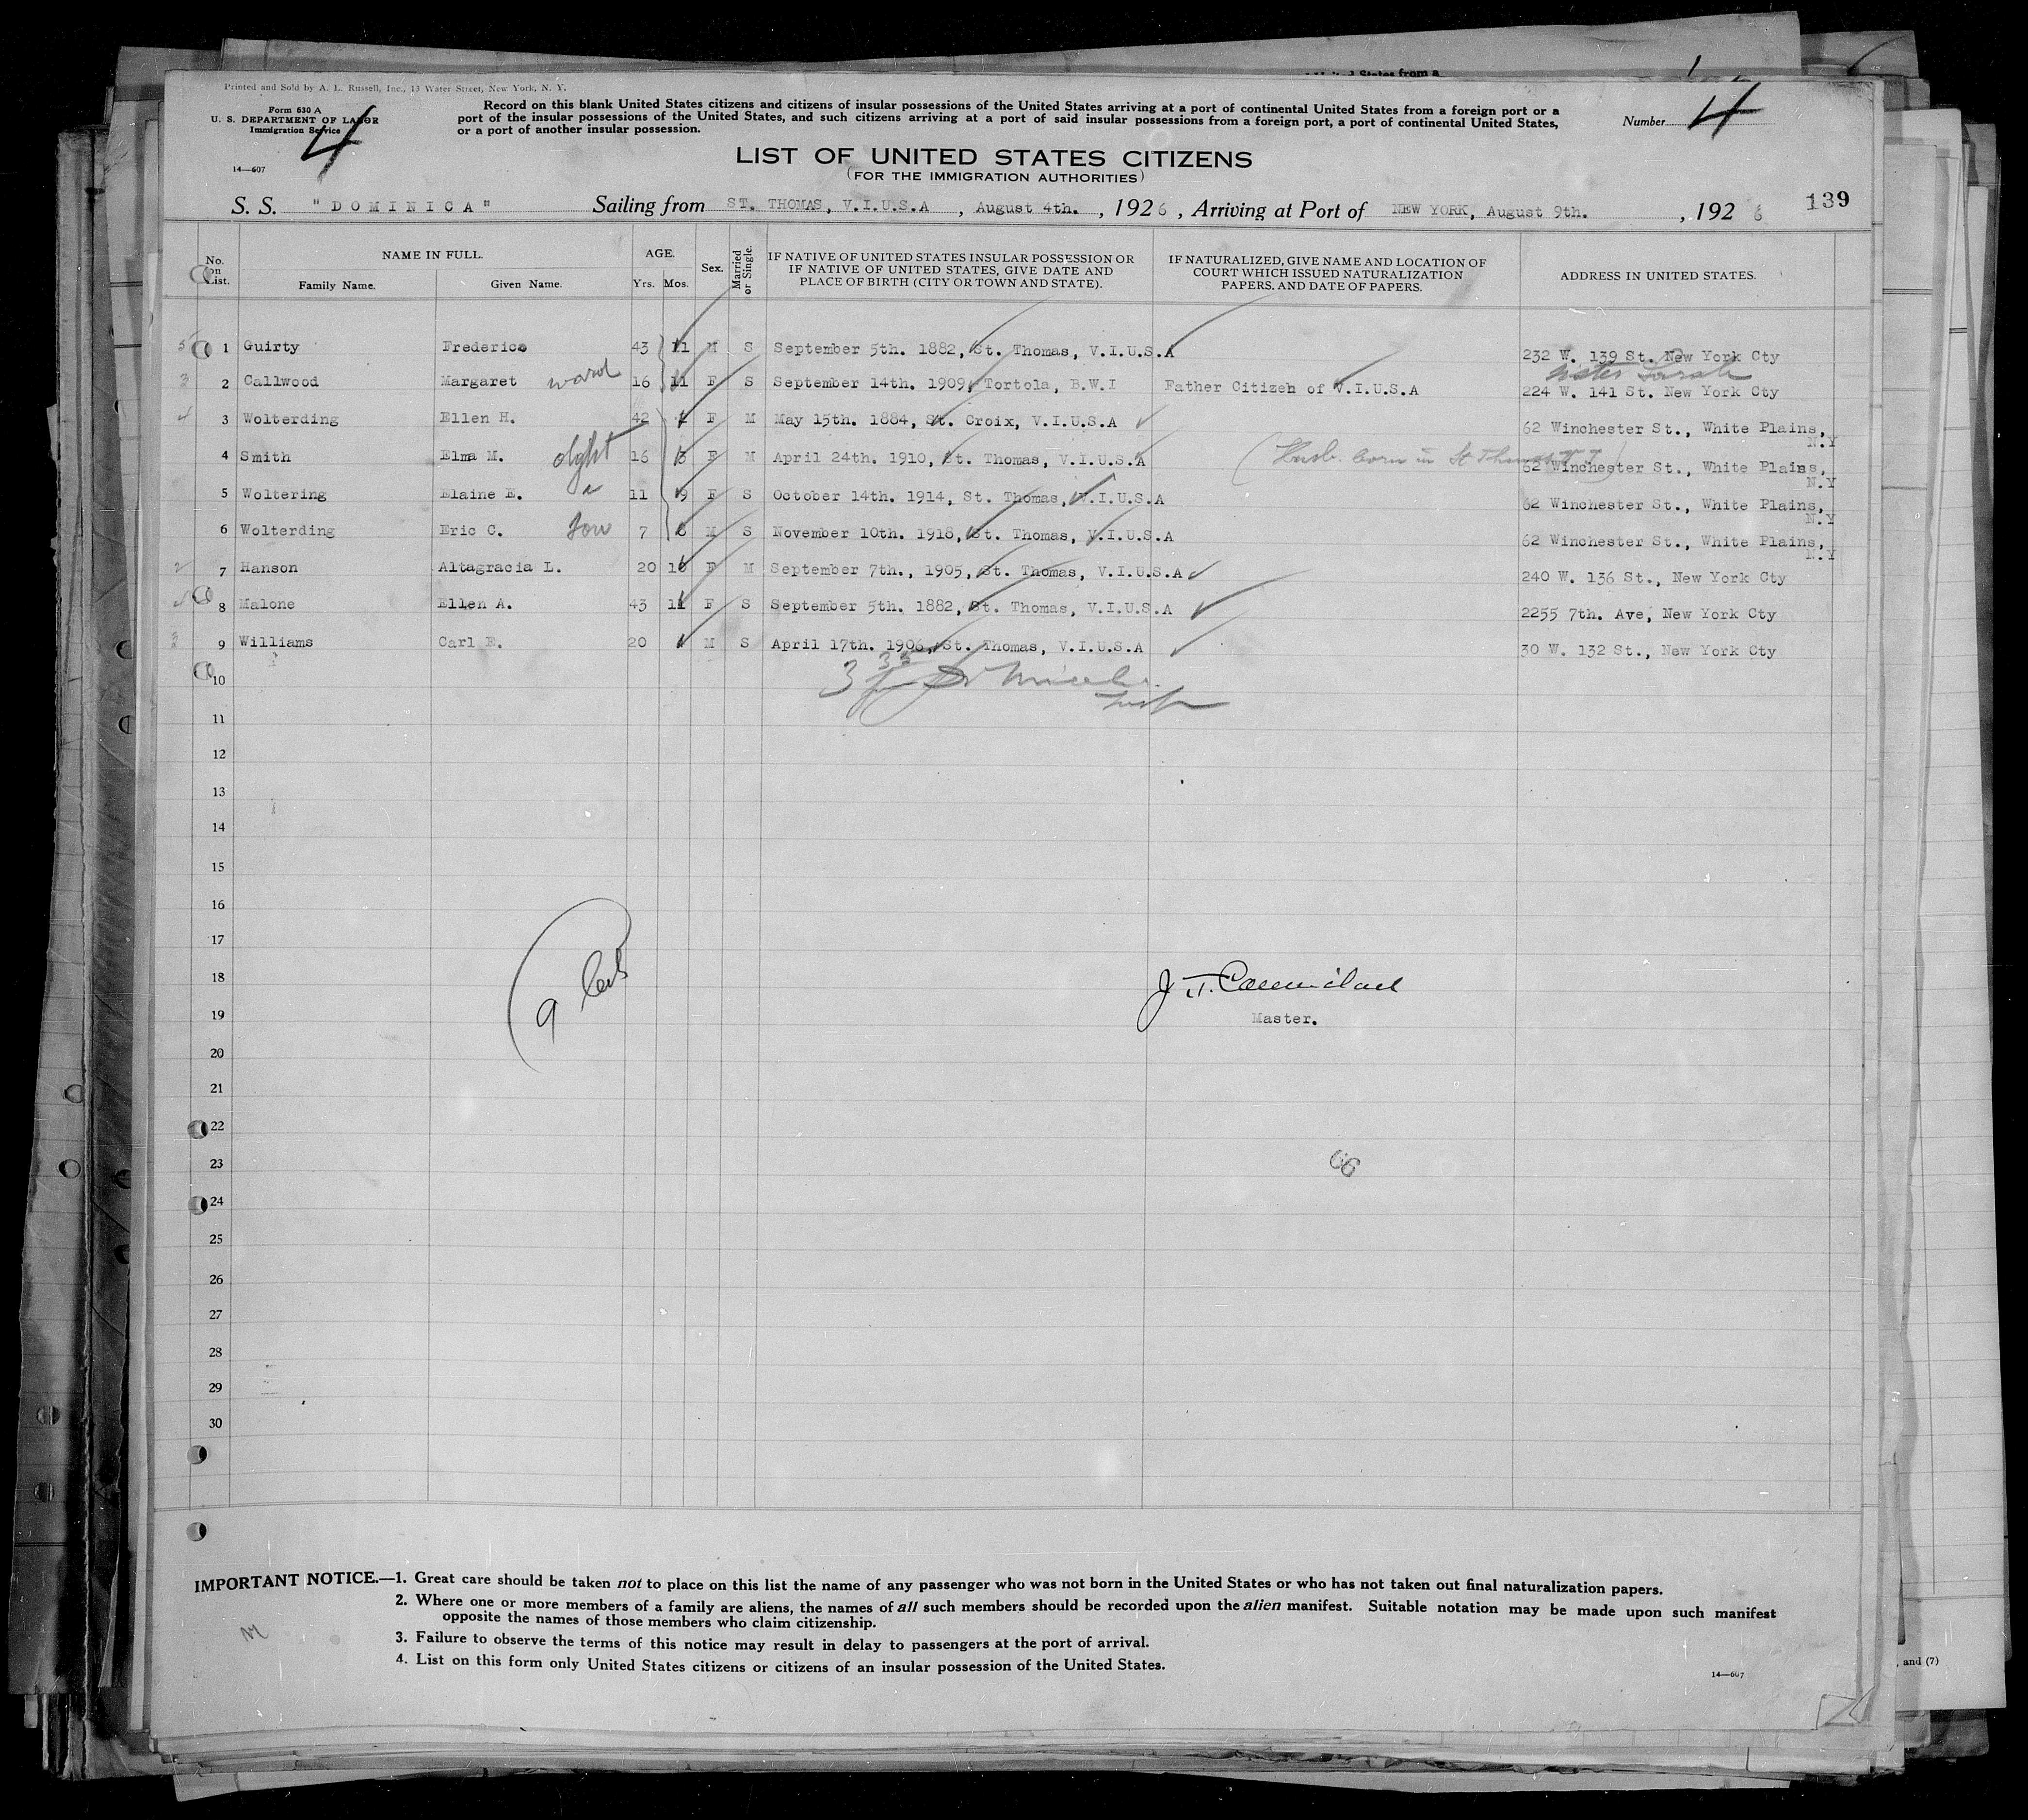 United States from a
Printed and Sold by A. L. Russell, Inc., 13 Water Street, New York, N. Y.
Form 630 A
U. S. DEPARTMENT OF LABOR
Immigration Service
14—607
4
Record on this blank United States citizens and citizens of insular possessions of the United States arriving at a port of continental United States from a foreign port or a
port of the insular possessions of the United States, and such citizens arriving at a port of said insular possessions from a foreign port, a port of continental United States,
or a port of another insular possession.
Number 4
LIST OF UNITED STATES CITIZENS
(FOR THE IMMIGRATION AUTHORITIES)
S. S. "DOMINICA" Sailing from ST. THOMAS, V.I.U.S.A , August 4th. , 1926 , Arriving at Port of NEW YORK, August 9th. , 1926 139
No. on List. NAME IN FULL. Family Name. Given Name. AGE. Yrs. Mos. Sex. Married or Single. IF NATIVE OF UNITED STATES INSULAR POSSESSION OR IF NATIVE OF UNITED STATES, GIVE DATE AND PLACE OF BIRTH (CITY OR TOWN AND STATE). IF NATURALIZED, GIVE NAME AND LOCATION OF COURT WHICH ISSUED NATURALIZATION PAPERS, AND DATE OF PAPERS. ADDRESS IN UNITED STATES.
5 1 Guirty Frederico 43 11 M S September 5th. 1882, St. Thomas, V.I.U.S.A 232 W. 139 St. New York Cty
sister Sarah
3 2 Callwood Margaret ward 16 11 F S September 14th. 1909, Tortola, B.W.I Father Citizen of V.I.U.S.A 224 W. 141 St. New York Cty
3 Wolterding Ellen H. 42 F M May 15th. 1884, St. Croix, V.I.U.S.A 62 Winchester St., White Plains, N.Y
4 Smith Elma M. dght 16 3 F M April 24th. 1910, St. Thomas, V.I.U.S.A (Husb. born in St Thomas V I) 62 Winchester St., White Plains, N.Y
5 Woltering Elaine E. " 11 9 F S October 14th. 1914, St. Thomas, V.I.U.S.A 62 Winchester St., White Plains, N.Y
6 Wolterding Eric C. Son 7 8 M S November 10th. 1918, St. Thomas, V.I.U.S.A 62 Winchester St., White Plains, N.Y
2 7 Hanson Altagracia L. 20 10 F M September 7th., 1905, St. Thomas, V.I.U.S.A 240 W. 136 St., New York Cty
8 Malone Ellen A. 43 11 F S September 5th. 1882, St. Thomas, V.I.U.S.A 2255 7th. Ave, New York Cty
3 9 Williams Carl E. 20 M S April 17th. 1906, St. Thomas, V.I.U.S.A 30 W. 132 St., New York Cty
10
11
12
13
14
15
16
17
18
19
20
21
22
23
24
25
26
27
28
29
30
9
J. T. Carmichael
Master.
66
IMPORTANT NOTICE.—1. Great care should be taken not to place on this list the name of any passenger who was not born in the United States or who has not taken out final naturalization papers.
2. Where one or more members of a family are aliens, the names of all such members should be recorded upon the alien manifest. Suitable notation may be made upon such manifest
opposite the names of those members who claim citizenship.
3. Failure to observe the terms of this notice may result in delay to passengers at the port of arrival.
4. List on this form only United States citizens or citizens of an insular possession of the United States.
14—607
, and (7)